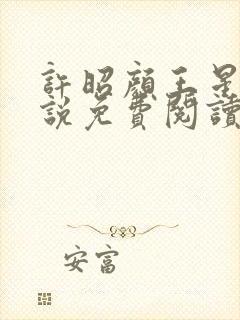 許昭顏王是
說免費閱讀
安富